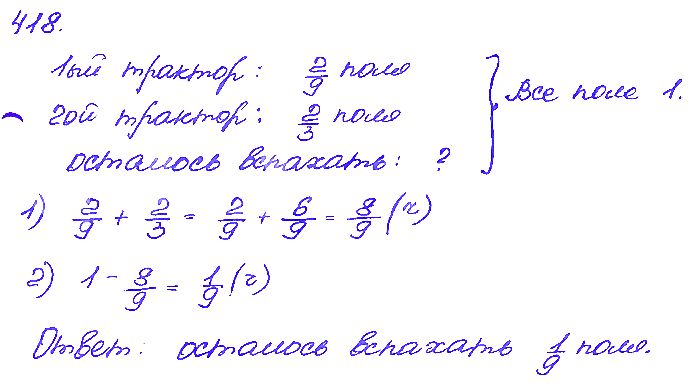 418.
1ый трактор: 2/9 поля
2ой трактор: 2/3 поля
осталось вспахать: ?
} Все поле 1.
1) 2/9 + 2/3 = 2/9 + 6/9 = 8/9 (ч)
2) 1 - 8/9 = 1/9 (ч)
Ответ: осталось вспахать 1/9 поля.